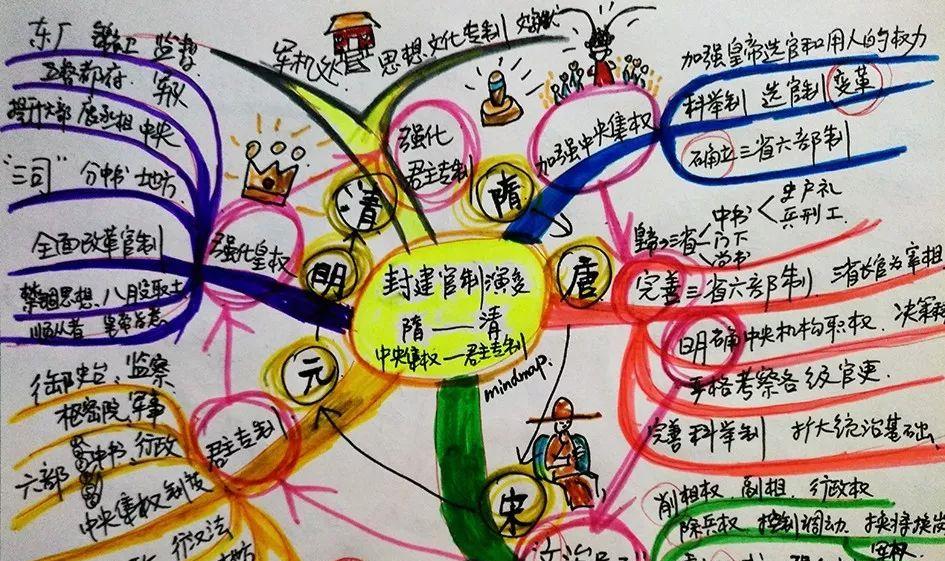 封建官制演变
隋——清
中央集权—君主专制
mindmap.
隋
加强中央集权
加强皇帝选官和用人的权力
科举制 选官制 变革
确立三省六部制
唐
完善三省六部制. 三省长官为宰相
皇帝>三省
中书
门下
尚书
吏户礼
兵刑工.
明确中央机构职权. 决策
严格考察各级官吏
完善科举制 扩大统治基础
宋
削相权. 副相. 行政权
除兵权 控制调动
元
君主专制
御史台、监察
枢密院、军事
中书、行政
六部
中央集权制度
行汉法
明
强化皇权
东厂 监督
五军都府. 军队
提升六部 废丞相 中央
"三司" 分中书 地方
全面改革官制
禁锢思想、八股取士
顺从者
清
强化
君主专制
军机处
思想文化专制